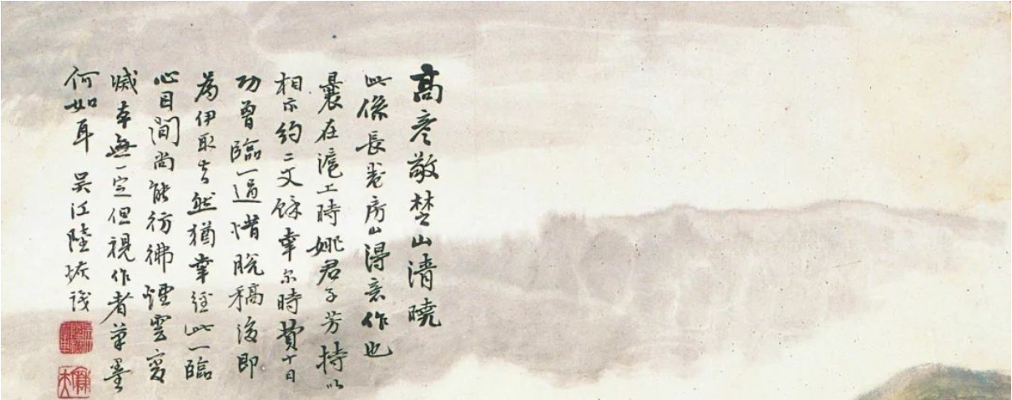 高彦敬楚山清曉
此係長卷房山得意作也
曩在滬上時姚君子芳持以
相示約二丈餘幸尔時費十日
功曾臨一過惜脫稿後即
為伊取去然猶幸經此一臨
心目間尚能彷彿煙雲變
滅本無一定但視作者筆墨
何如耳 吳江陸恢識